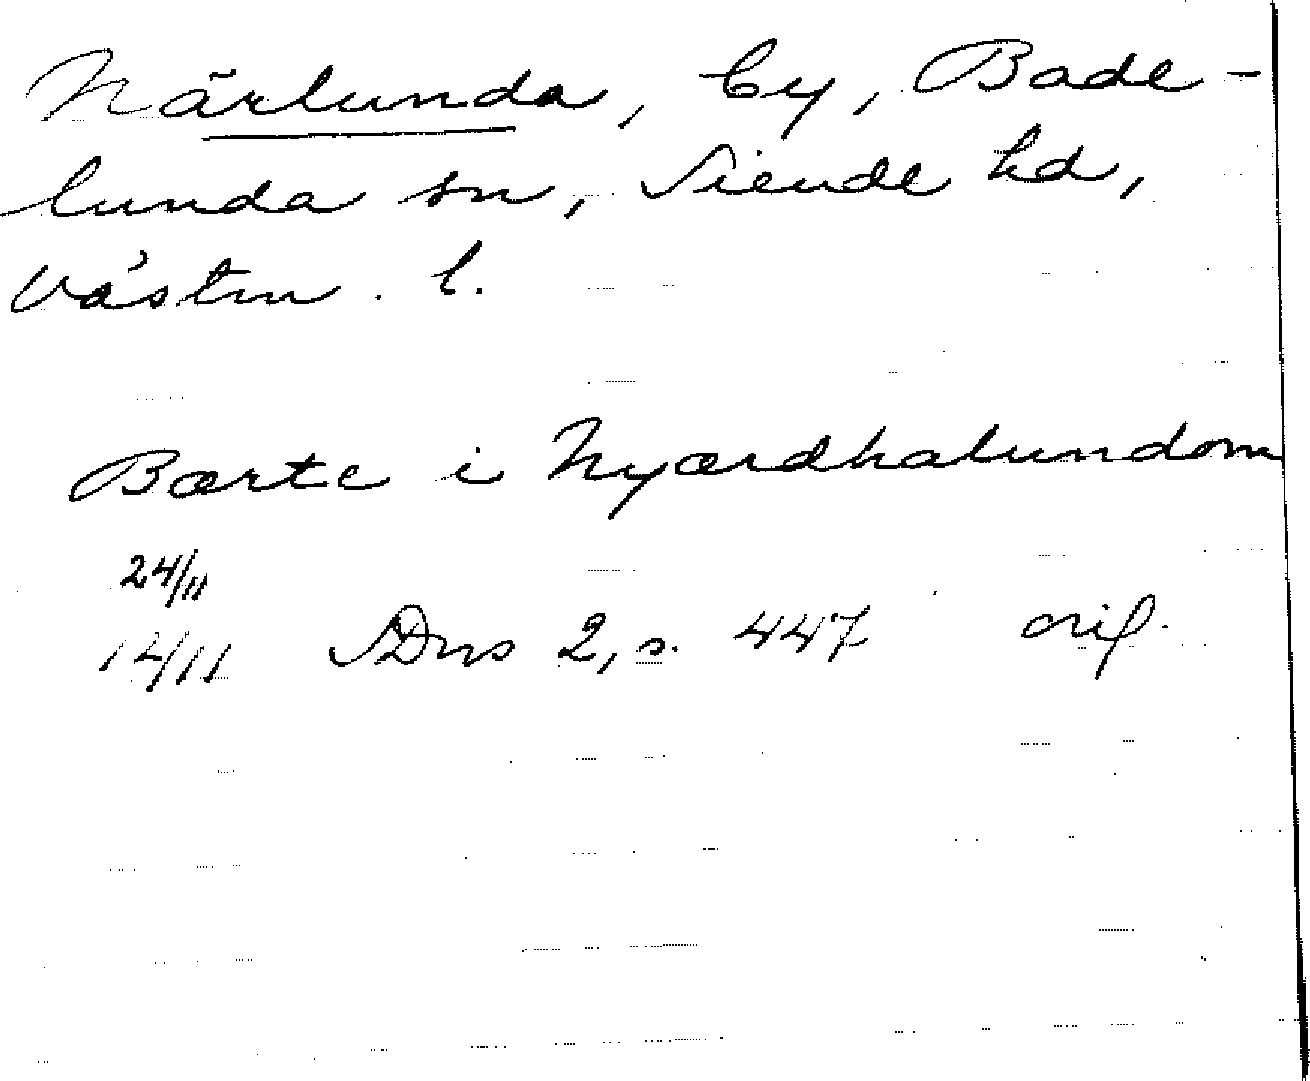 Närlunda, by, Bade-
lunda sn, Siende hd,
Västm. l.
Bærte i Nyærdhalundom
24/11
1411 SDns 2, s. 447 orig.